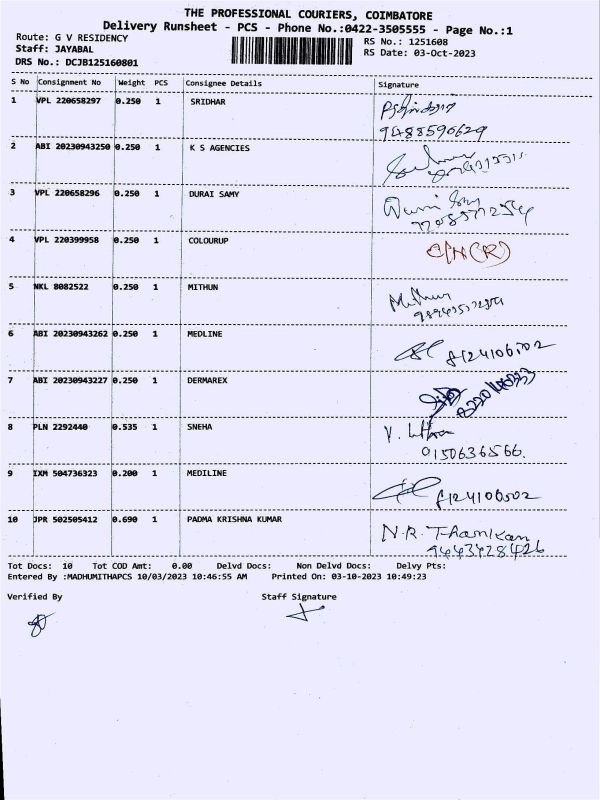 THE PROFESSIONAL COURIERS, COIMBATORE
Delivery Runsheet - PCS - Phone No.:0422-3505555 - Page No.:1
Route: G V RESIDENCY
RS No.: 1251608
Staff: JAYABAL
RS Date: 03-Oct-2023
DRS No.: DCJB125160801
S No Consignment No Weight PCS Consignee Details Signature
1 VPL 220658297 0.250 1 SRIDHAR
9488590629
2 ABI 20230943250 0.250 1 K S AGENCIES
3 VPL 220658296 0.250 1 DURAI SAMY
4 VPL 220399958 0.250 1 COLOURUP C/N(R)
5 NKL 8082522 0.250 1 MITHUN Mithun
6 ABI 20230943262 0.250 1 MEDLINE
7 ABI 20230943227 0.250 1 DERMAREX
8 PLN 2292440 0.535 1 SNEHA
0150636566.
9 IXM 504736323 0.200 1 MEDILINE
10 JPR 502505412 0.690 1 PADMA KRISHNA KUMAR N.R. Thamikan
9443428426
Tot Docs: 10 Tot COD Amt: 0.00 Delvd Docs: Non Delvd Docs: Delvy Pts:
Entered By :MADHUMITHAPCS 10/03/2023 10:46:55 AM Printed On: 03-10-2023 10:49:23
Verified By Staff Signature